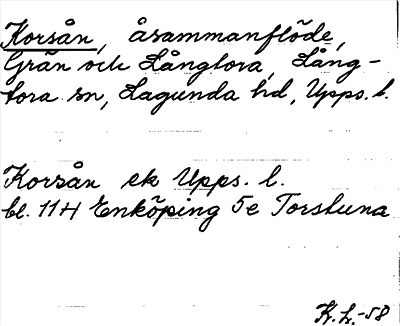 Korsån, åsammanflöde,
Grän och Långtora, Lång-
tora sn, Lagunda hd, Upps. l.
Korsån ek Upps. l.
bl. 114 Enköping 5e Torstuna
K. L. -58